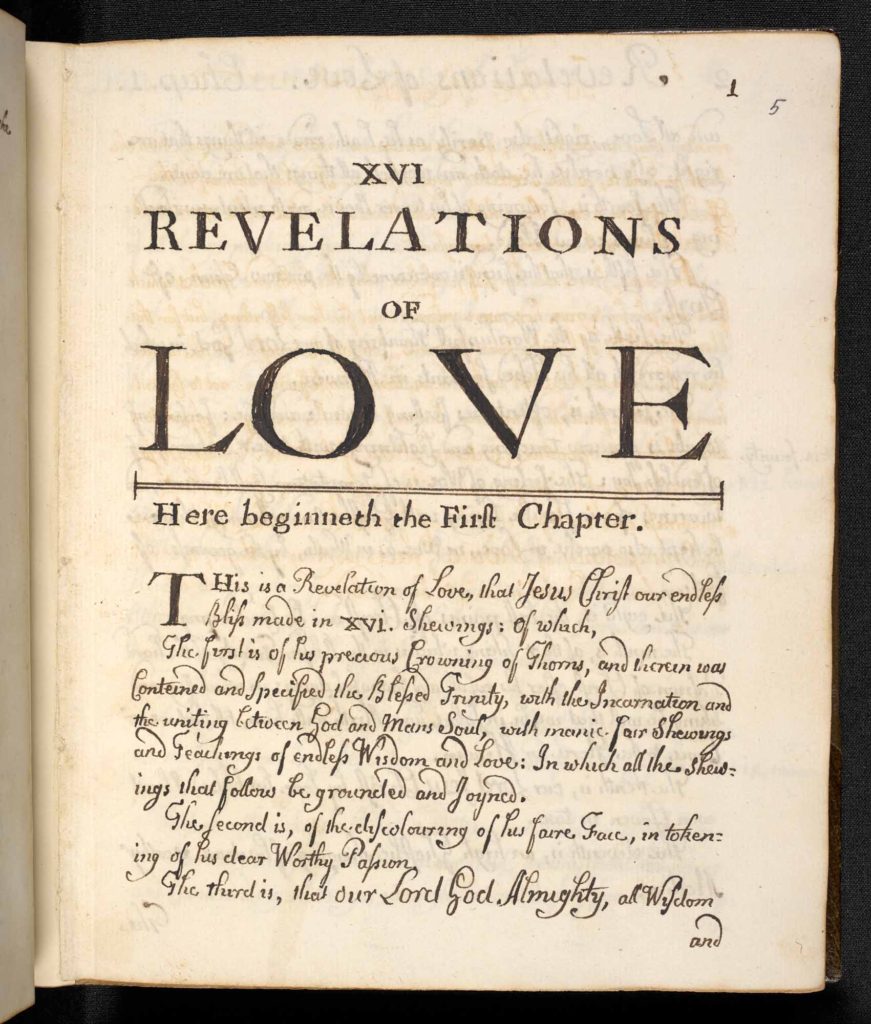 1
5
XVI
REVELATIONS
OF
LOVE
Here beginneth the Firſt Chapter.
THis is a Revelation of Love, that Jesus Chriſt our endleſs
Bliſs made in XVI. Shewings: of which,
The first is of his precious Crowning of Thorns, and therein was
Conteined and Specified the Bleſsed Trinity, with the Incarnation and
the uniting between God and Mans Soul, with manie fair Shewings
and Teachings of endleſs Wisdom and Love: In which all the Shew:
ings that follow be grounded and Joyned.
The Second is, of the diſcolouring of his faire Face, in token:
ing of his dear Worthy Paſsion.
The third is, that our Lord God Almighty, all Wiſdom
and